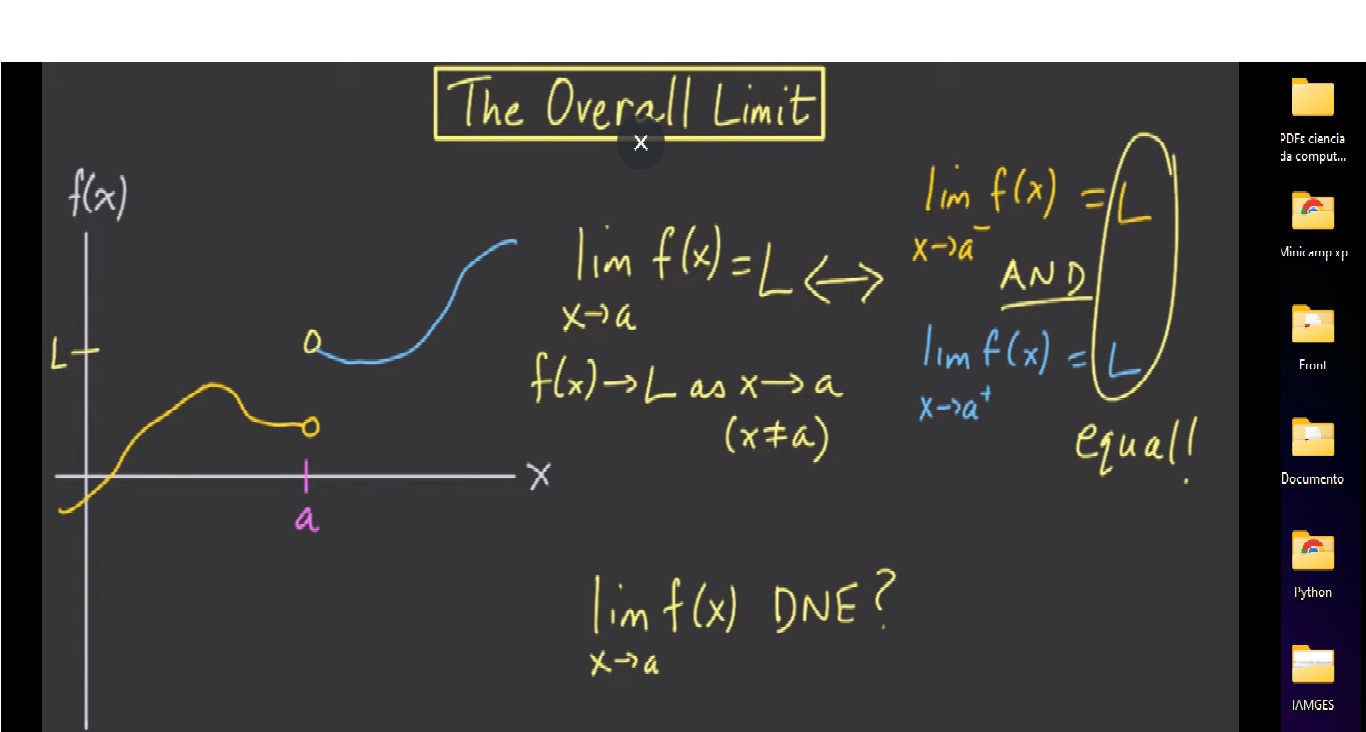 The Overall Limit
X
f(x)
L
x
a
lim f(x) = L ↔
x→a
f(x) → L as x → a
(x ≠ a)
lim f(x) = L
x→a⁻
AND
lim f(x) = L
x→a⁺
equal!
lim f(x) DNE?
x→a
PDFs ciencia
da comput...
Minicamp xp
Front
Documento
Python
IAMGES